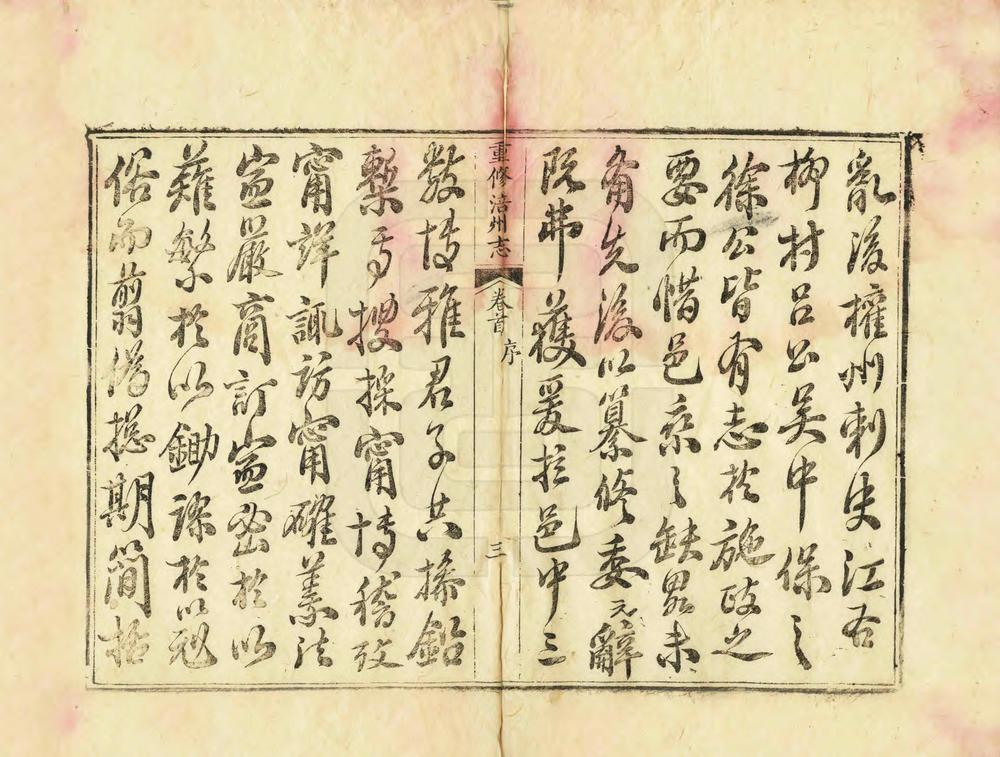 亂後擢州刺史江右
柳村呂公吳中保之
徐公皆有志於施政之
要而惜邑乘之缺畧未
備先後以纂修委元辭
既弗獲爰於邑中三
重修涪州志 卷首 序 三
數博雅君子共操鉛
槧爭搜採甯博稽攷
甯詳諏訪甯確義法
寧嚴商訂寧密於以
薙繁於以鋤謬於以剋
俗而翦僞總期簡括